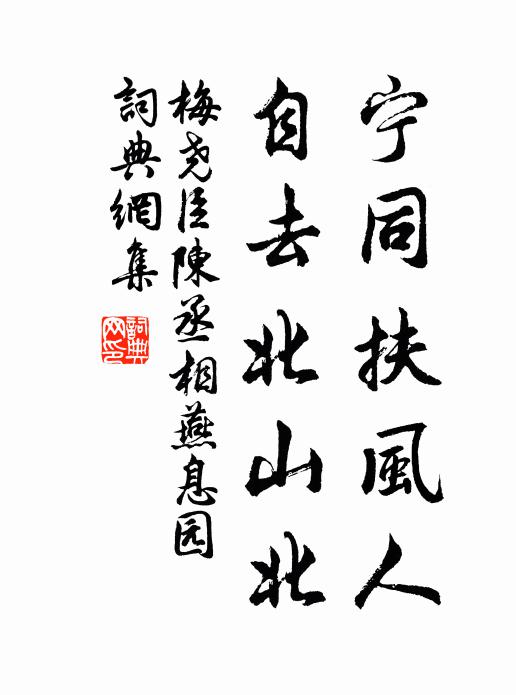 宁同扶風人
自去北山北
梅尧臣陳丞相燕息园
詞典網集
詞典
网印